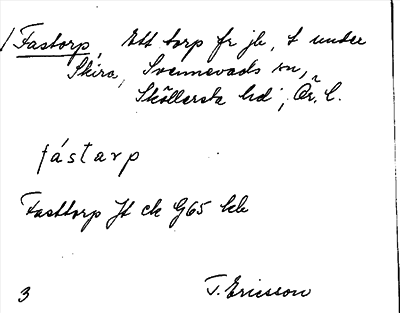 Fastorp, Ett torp fr jb, t under
Skira, Svennevads sn,
Sköllersta hd, Ör. l.
fástarp
Fasttorp Jt ck G65 kb
3 T. Ericsson